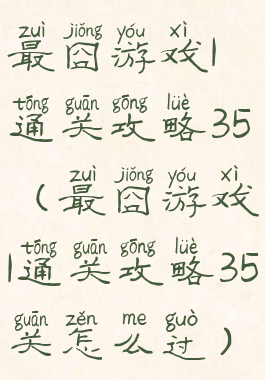 zuì jiǒng yóu xì
最囧游戏1
tōng guān gōng lüè
通关攻略35
zuì jiǒng yóu xì
（最囧游戏
tōng guān gōng lüè
1通关攻略35
guān zěn me guò
关怎么过）